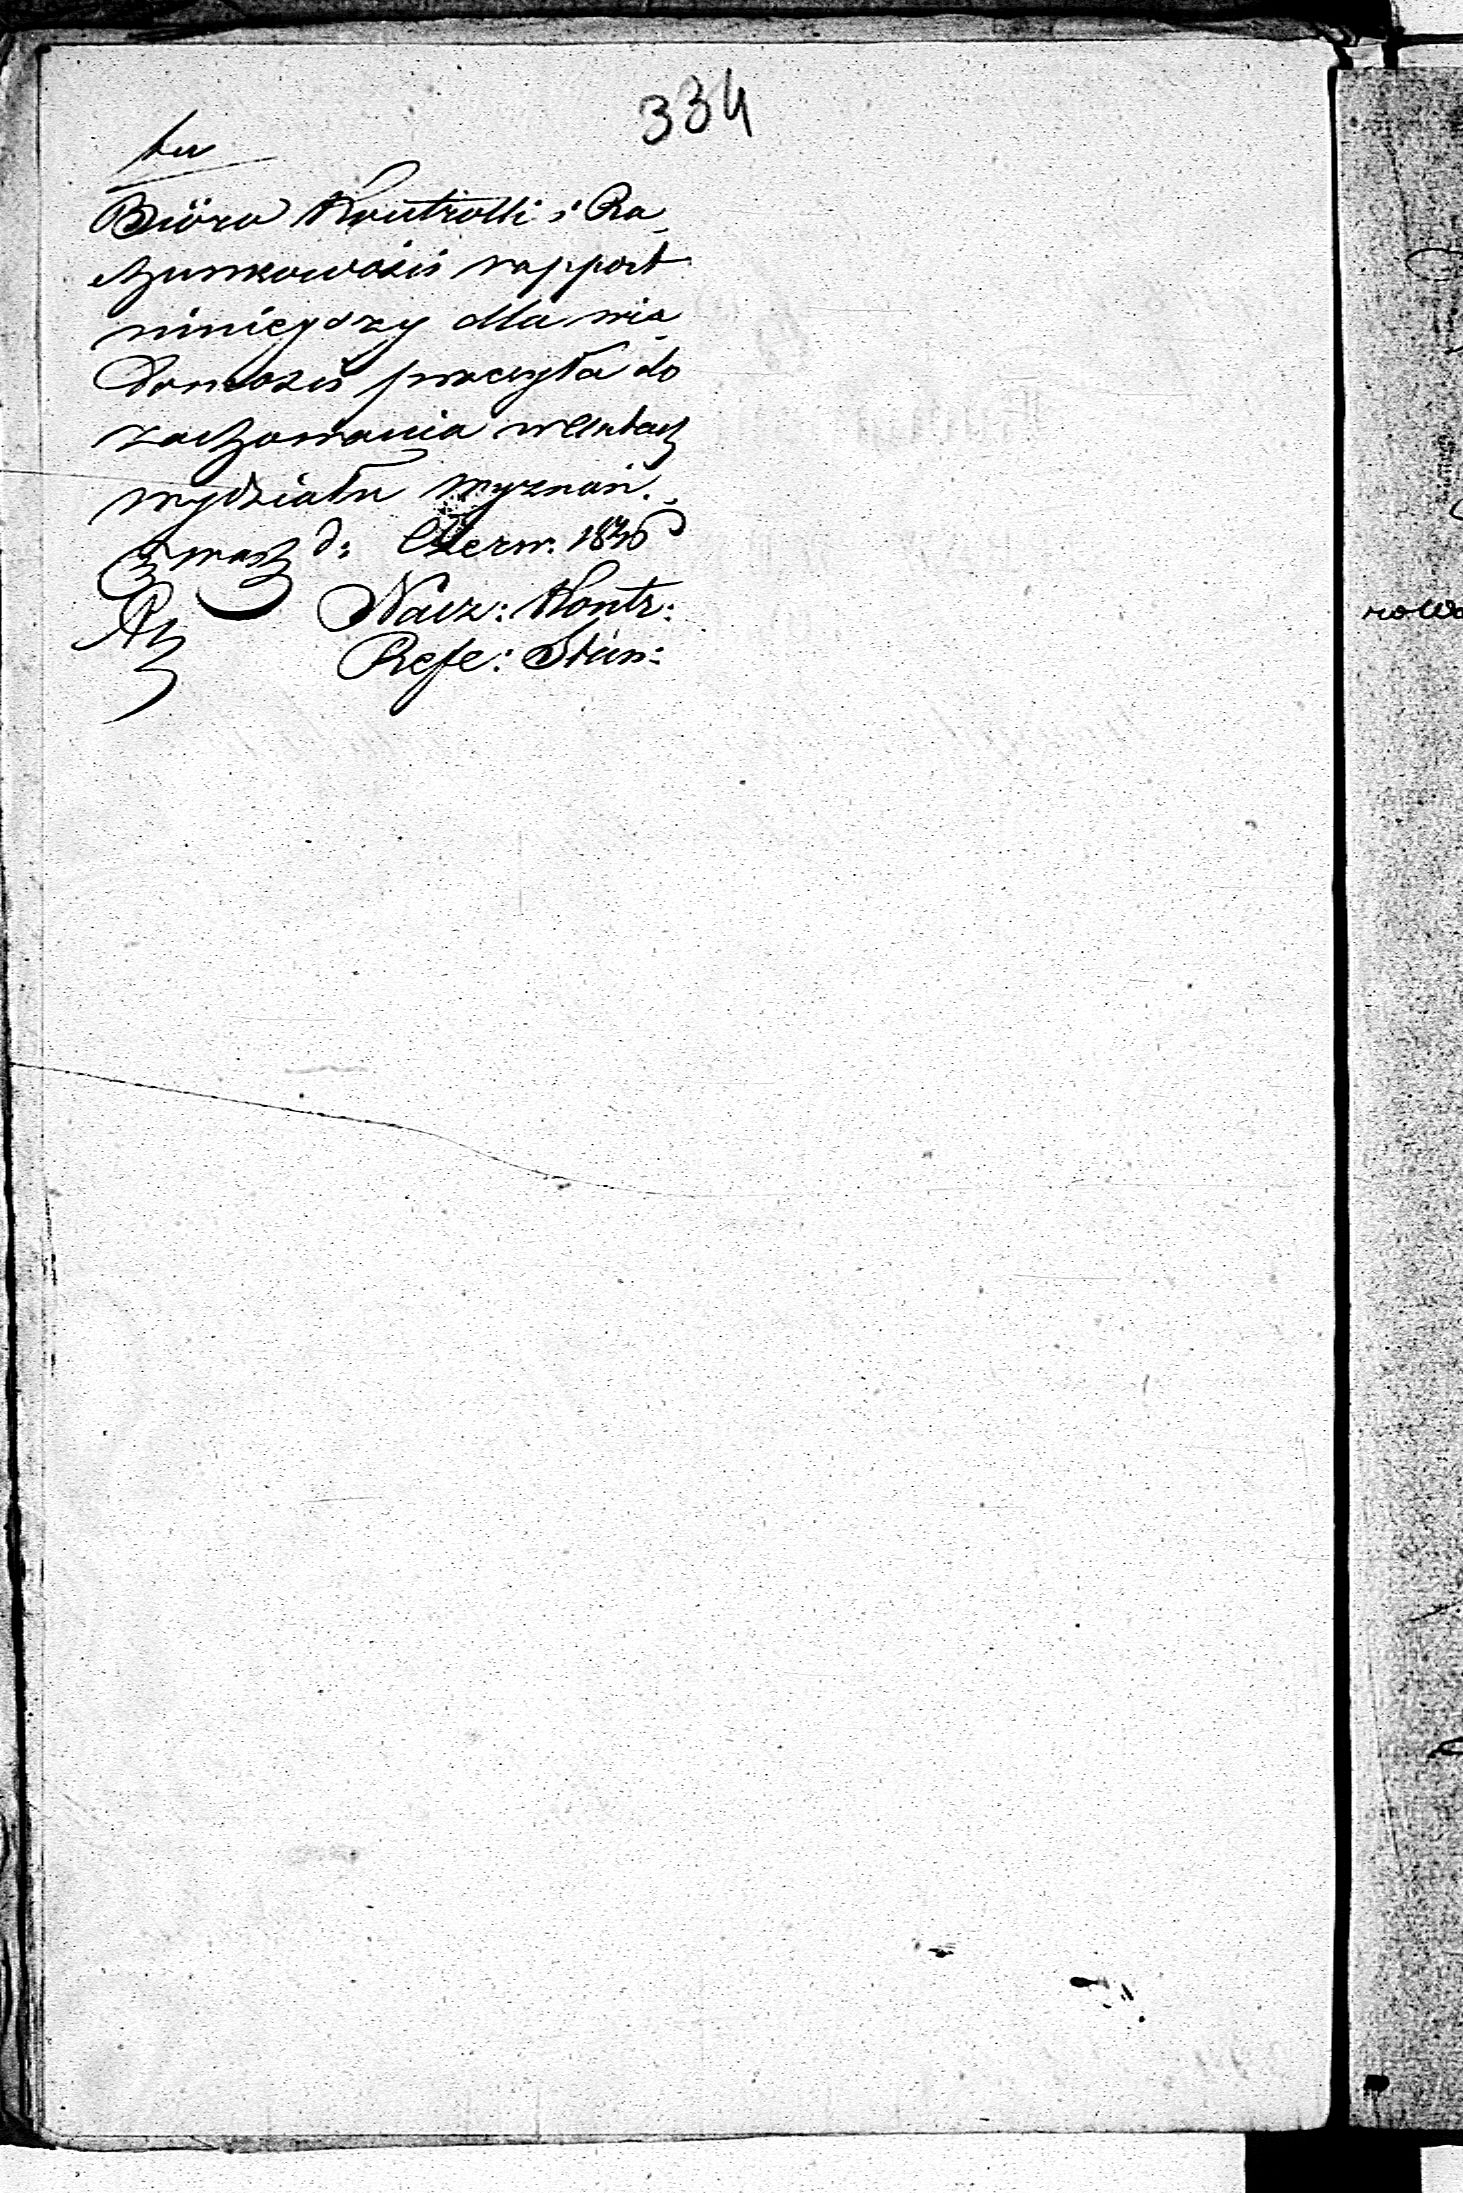 334
Biöro Kontrolli i Ra
chunkowości rapport
ninieyszy dla wia
domości przeczyta do
zachowania w Aktach
wydziału wyznań.
d: Czerw. 1836
Nacz: Kontr:
Refe: Stan:
rowa